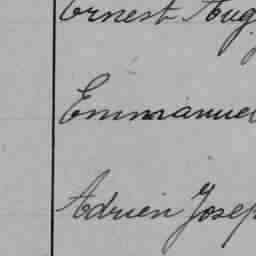 Ernest Aug
Emmanuel
Adrien Josep